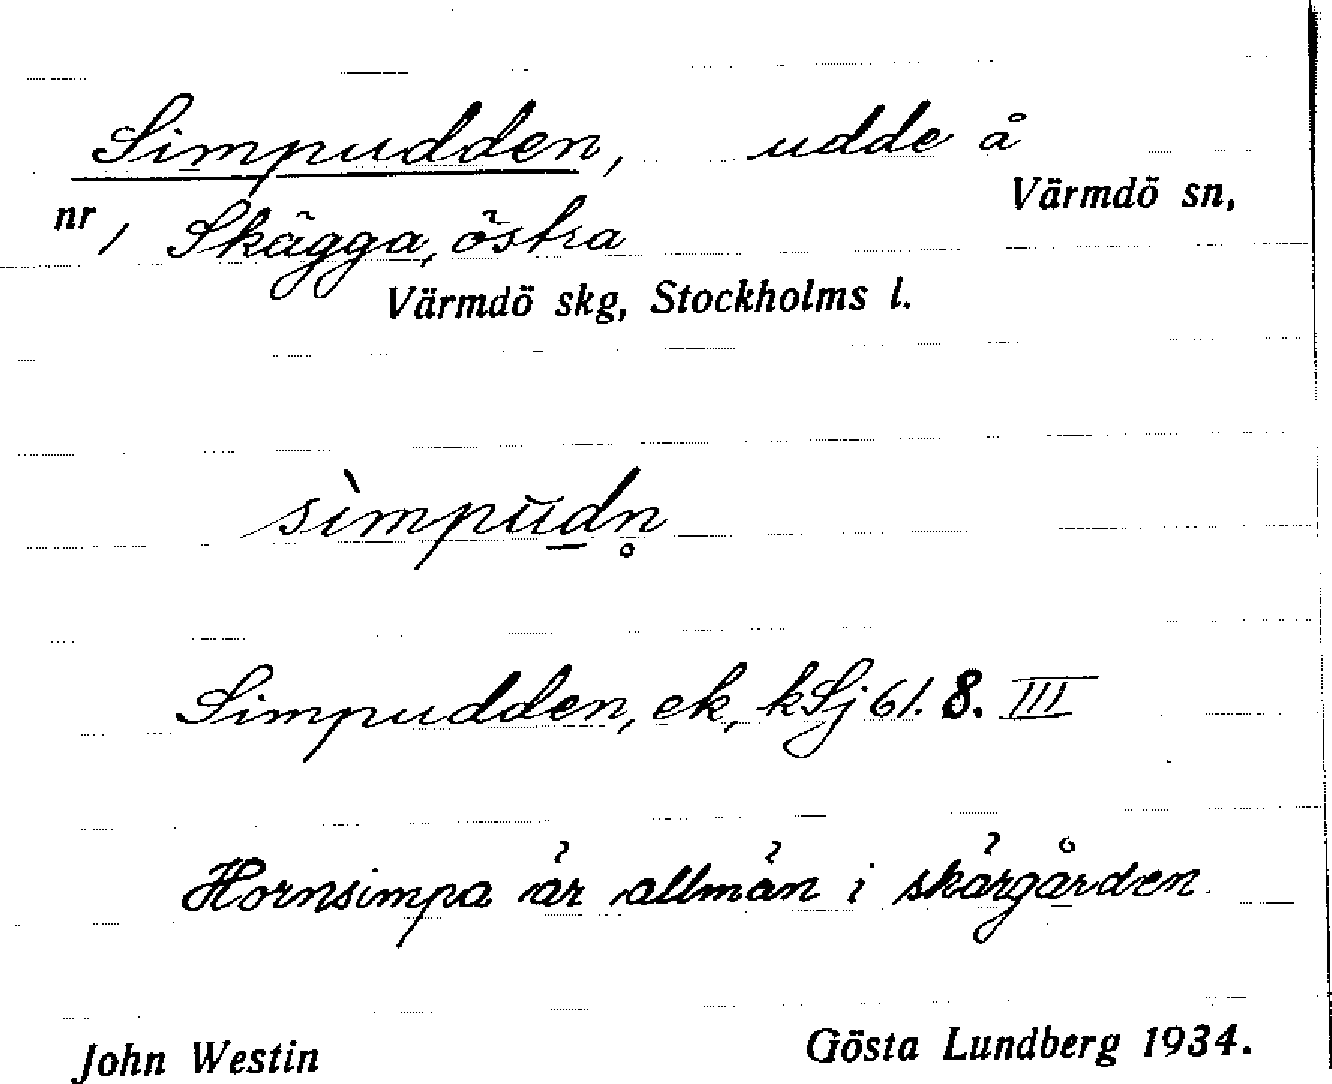 Simpudden, udde å
Värmdö sn,
nr 1 Skägga, östra
Värmdö skg, Stockholms l.
sìmpŭd̲n̥
Simpudden, ek, kSj 61. 8. III
Hornsimpa är allmän i skärgården
John Westin
Gösta Lundberg 1934.